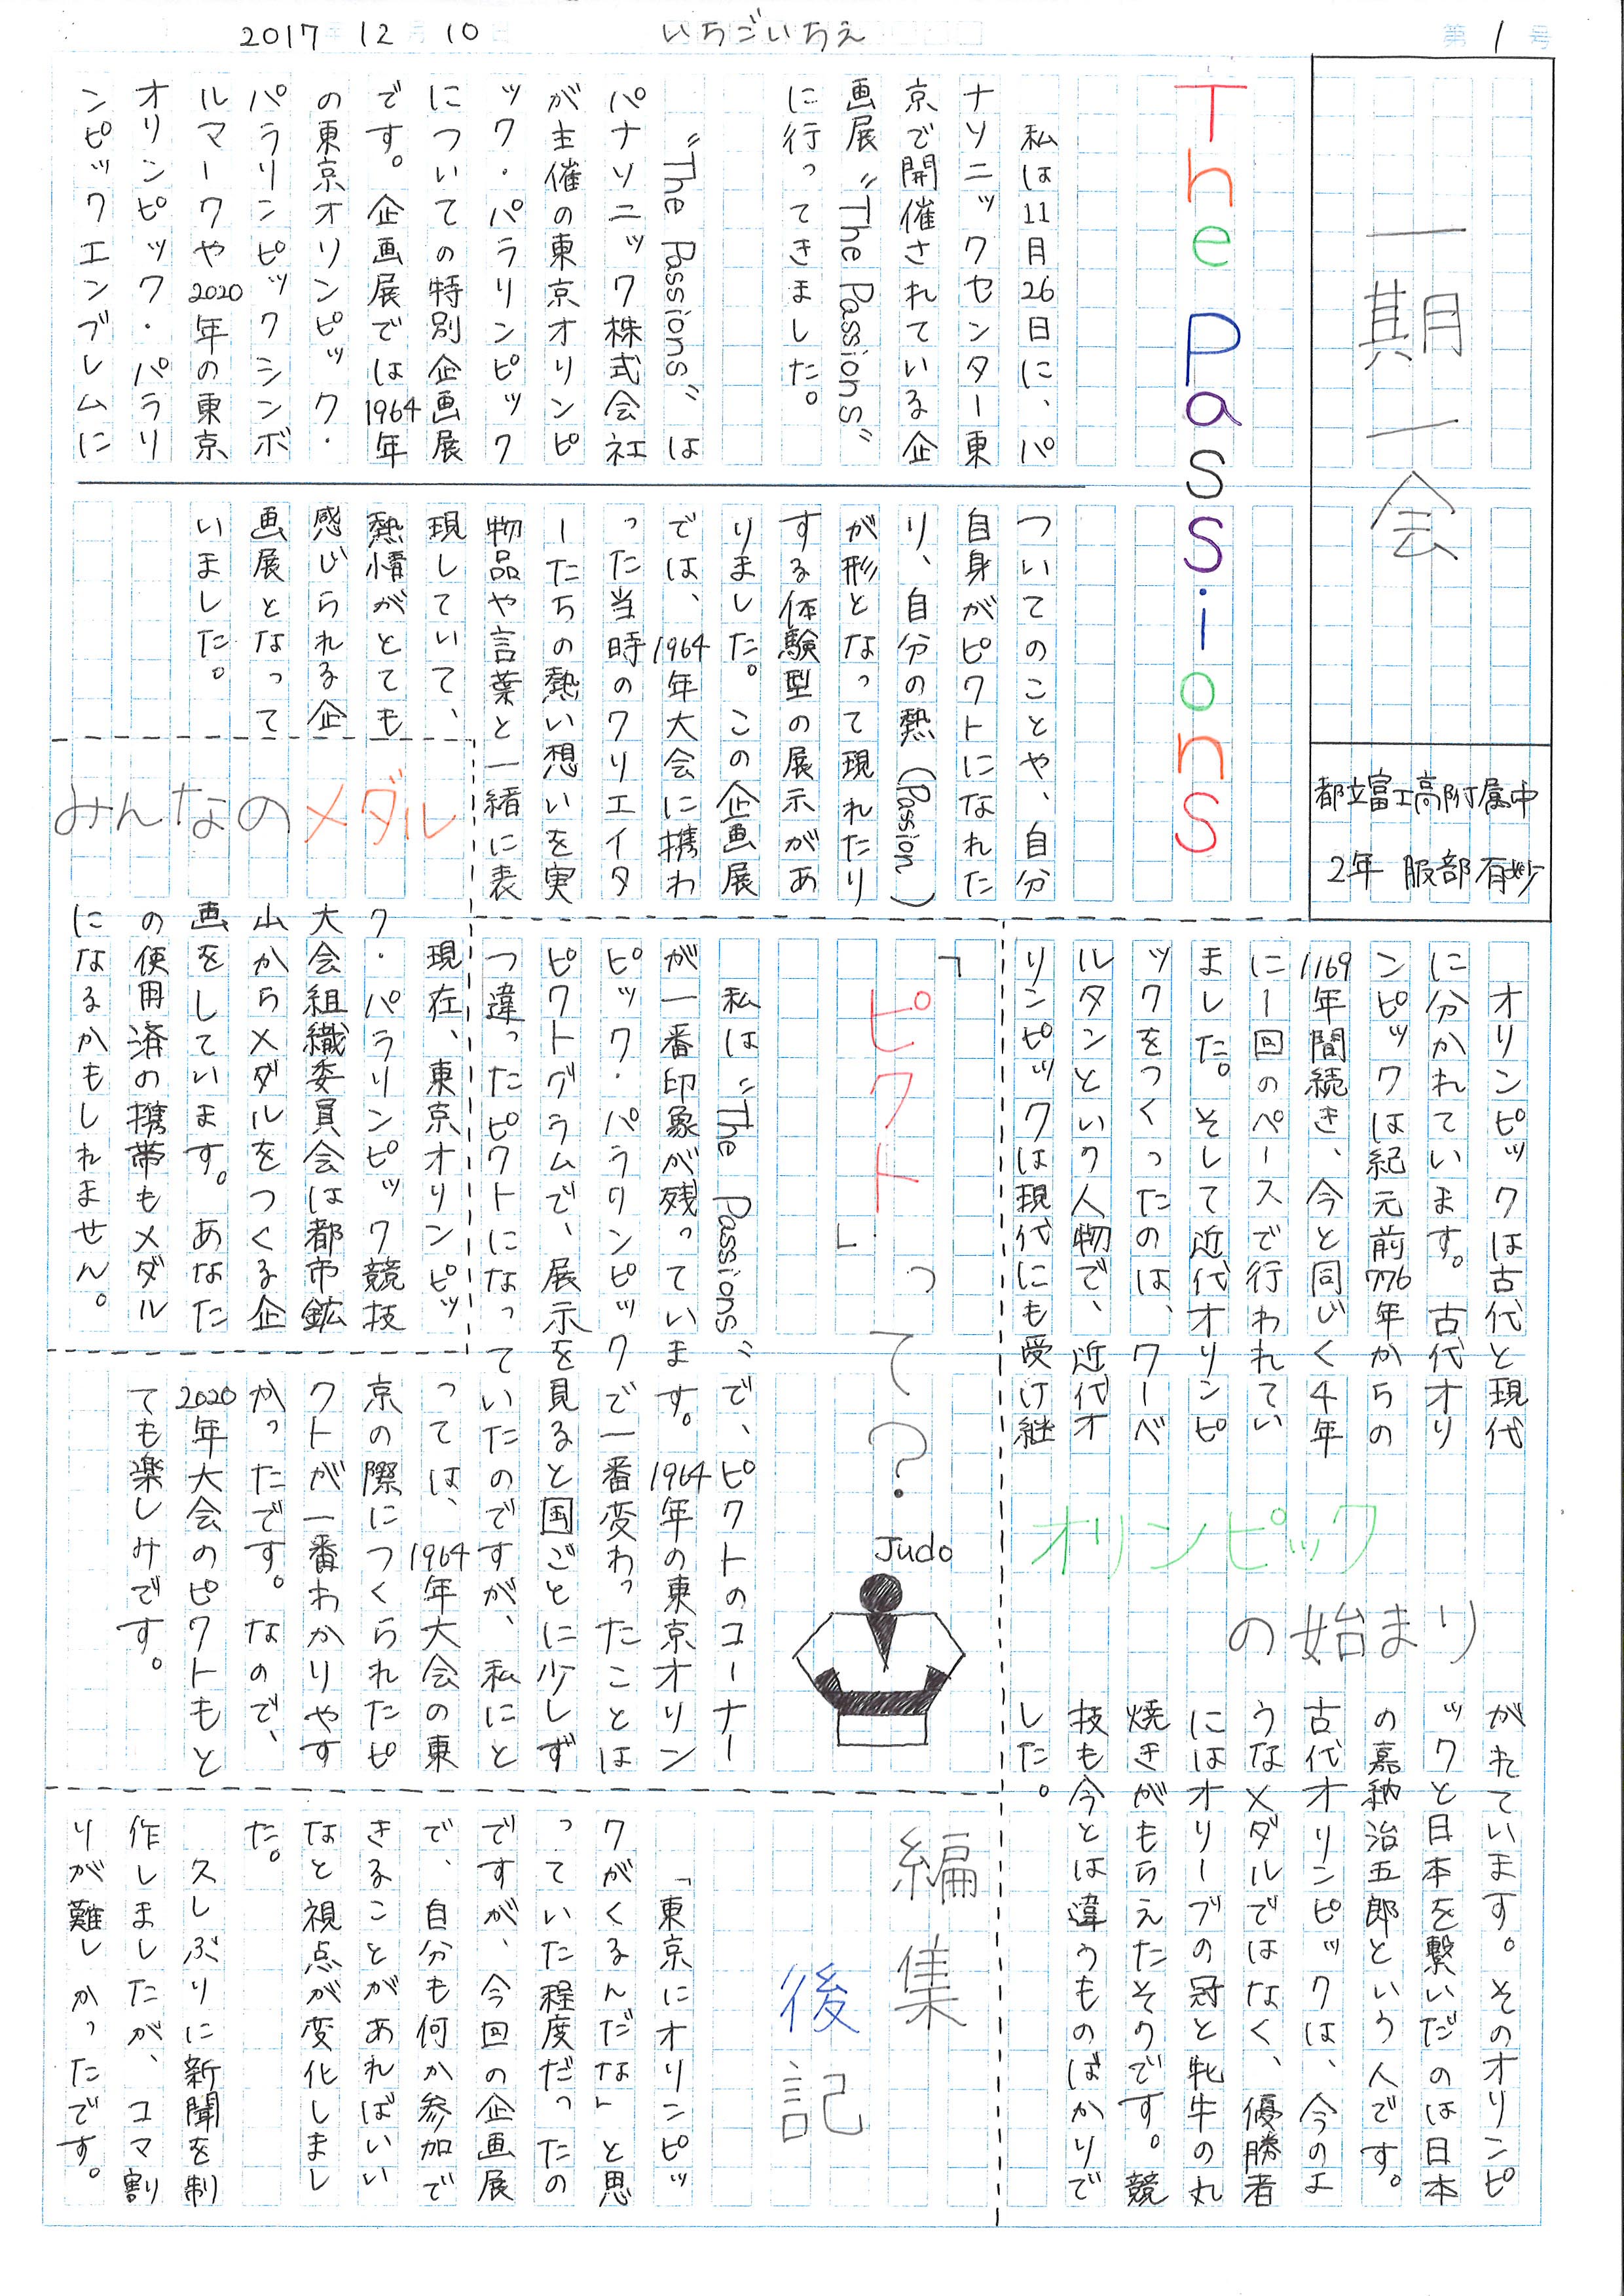 2017年12月10日
いちごいちえ
第1号
一期一会
都立富士高附属中
2年 服部有妙
The Passions
私は11月26日に、パ
ナソニックセンター東
京で開催されている企
画展“The Passions”
に行ってきました。
“The Passions”は
パナソニック株式会社
が主催の東京オリンピ
ック・パラリンピック
についての特別企画展
です。企画展では1964年
の東京オリンピック・
パラリンピックシンボ
ルマークや2020年の東京
オリンピック・パラリ
ンピックエンブレムに
ついてのことや、自分
自身がピクトになれた
り、自分の熱(Passion)
が形となって現れたり
する体験型の展示があ
りました。この企画展
では、1964年大会に携わ
った当時のクリエイタ
ーたちの熱い想いを実
物品や言葉と一緒に表
現していて、
熱情がとても
感じられる企
画展となって
いました。
オリンピック
の始まり
オリンピックは古代と現代
に分かれています。古代オリ
ンピックは紀元前776年からの
1169年間続き、今と同じく4年
に1回のペースで行われてい
ました。そして近代オリンピ
ックをつくったのは、クーベ
ルタンという人物で、近代オ
リンピックは現代にも受け継
がれています。そのオリンピ
ックと日本を繋いだのは日本
の嘉納治五郎という人です。
古代オリンピックは、今のよ
うなメダルではなく、優勝者
にはオリーブの冠と牝牛の丸
焼きがもらえたそうです。競
技も今とは違うものばかりで
した。
「ピクト」って?
Judo
私は“The Passions”で、ピクトのコーナー
が一番印象が残っています。1964年の東京オリン
ピック・パラリンピックで一番変わったことは
ピクトグラムで、展示を見ると国ごとに少しず
つ違ったピクトになっていたのですが、私にと
っては、1964年大会の東
京の際につくられたピ
クトが一番わかりやす
かったです。なので、
2020年大会のピクトもと
ても楽しみです。
みんなのメダル
現在、東京オリンピッ
ク・パラリンピック競技
大会組織委員会は都市鉱
山からメダルをつくる企
画をしています。あなた
の使用済の携帯もメダル
になるかもしれません。
編集
後記
「東京にオリンピッ
クがくるんだな」と思
っていた程度だったの
ですが、今回の企画展
で、自分も何か参加で
きることがあればいい
なと視点が変化しまし
た。
久しぶりに新聞を制
作しましたが、コマ割
りが難しかったです。